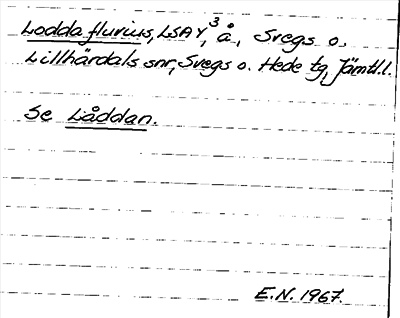 Lodda fluvius, LSAY³, å, Svegs o.
Lillhärdals snr, Svegs o. Hede tg, Jämtl.l.
Se Låddan.
E.N. 1967.